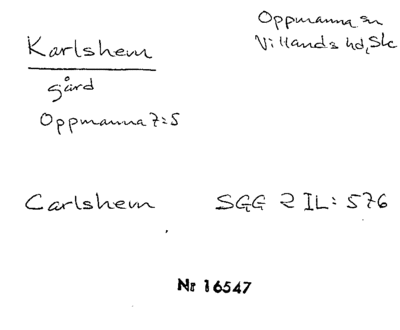 Karlshem
Oppmanna sn
Villands hd, Sk
gård
Oppmanna 7:5
Carlshem SGG 2 IL: 576
Nr 16547